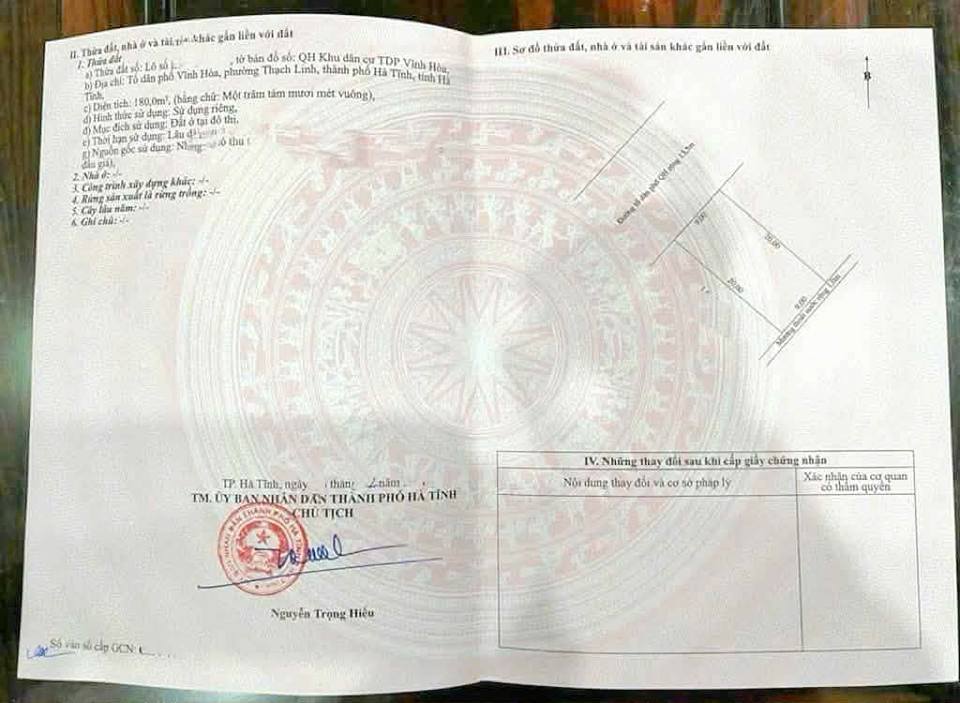 II. Thửa đất, nhà ở và tài sản khác gắn liền với đất
1. Thửa đất
a) Thửa đất số: Lô số , tờ bản đồ số: QH Khu dân cư TDP Vĩnh Hòa,
b) Địa chỉ: Tổ dân phố Vĩnh Hòa, phường Thạch Linh, thành phố Hà Tĩnh, tỉnh Hà
Tĩnh,
c) Diện tích: 180,0m², (bằng chữ: Một trăm tám mươi mét vuông),
d) Hình thức sử dụng: Sử dụng riêng,
đ) Mục đích sử dụng: Đất ở tại đô thị,
e) Thời hạn sử dụng: Lâu
g) Nguồn gốc sử dụng: thu
đấu giá),
2. Nhà ở: -/-
3. Công trình xây dựng khác: -/-
4. Rừng sản xuất là rừng trồng: -/-
5. Cây lâu năm: -/-
6. Ghi chú: -/-
TP. Hà Tĩnh, ngày tháng năm
TM. ỦY BAN NHÂN DÂN THÀNH PHỐ HÀ TĨNH
CHỦ TỊCH
Nguyễn Trọng Hiếu
Số vào sổ cấp GCN:
III. Sơ đồ thửa đất, nhà ở và tài sản khác gắn liền với đất
B
Đường tổ dân phố QH rộng 13,5m
9.00
20.00
20.00
9.00
Mương thoát nước rộng 1,0m
IV. Những thay đổi sau khi cấp giấy chứng nhận
Nội dung thay đổi và cơ sở pháp lý
Xác nhận của cơ quan
có thẩm quyền